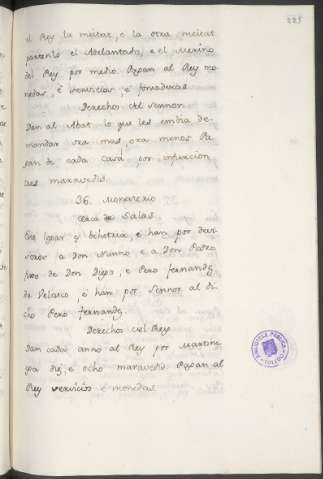 225
el Rey la meitat, e la otra meitat
parten lo el Adelantado, e el Merino
del Rey por medio. Pagan al Rey mo
nedas, è servicios, è fonsaderas
Derechos del Sennor
Dan al Abat lo que les embia de-
mandar ora mas, ora menos Pa
gan de cada casa por infurcion
tres maravedis.
36. Monasterio
cerca de Salas.
Este logar es behetria, è han por devi
seros a Don Nunno e a Don Pedro
fijos de Don Diego, e Pero Fernandez
de Velasco, è han por Sennor al di
cho Pero Fernandez.
Derechos del Rey
Dan cada anno al Rey por Martini
ega diez, e ocho maravedis Pagan al
Rey servicios è monedas.
BIBLIOTECA PUBLICA
TOLEDO